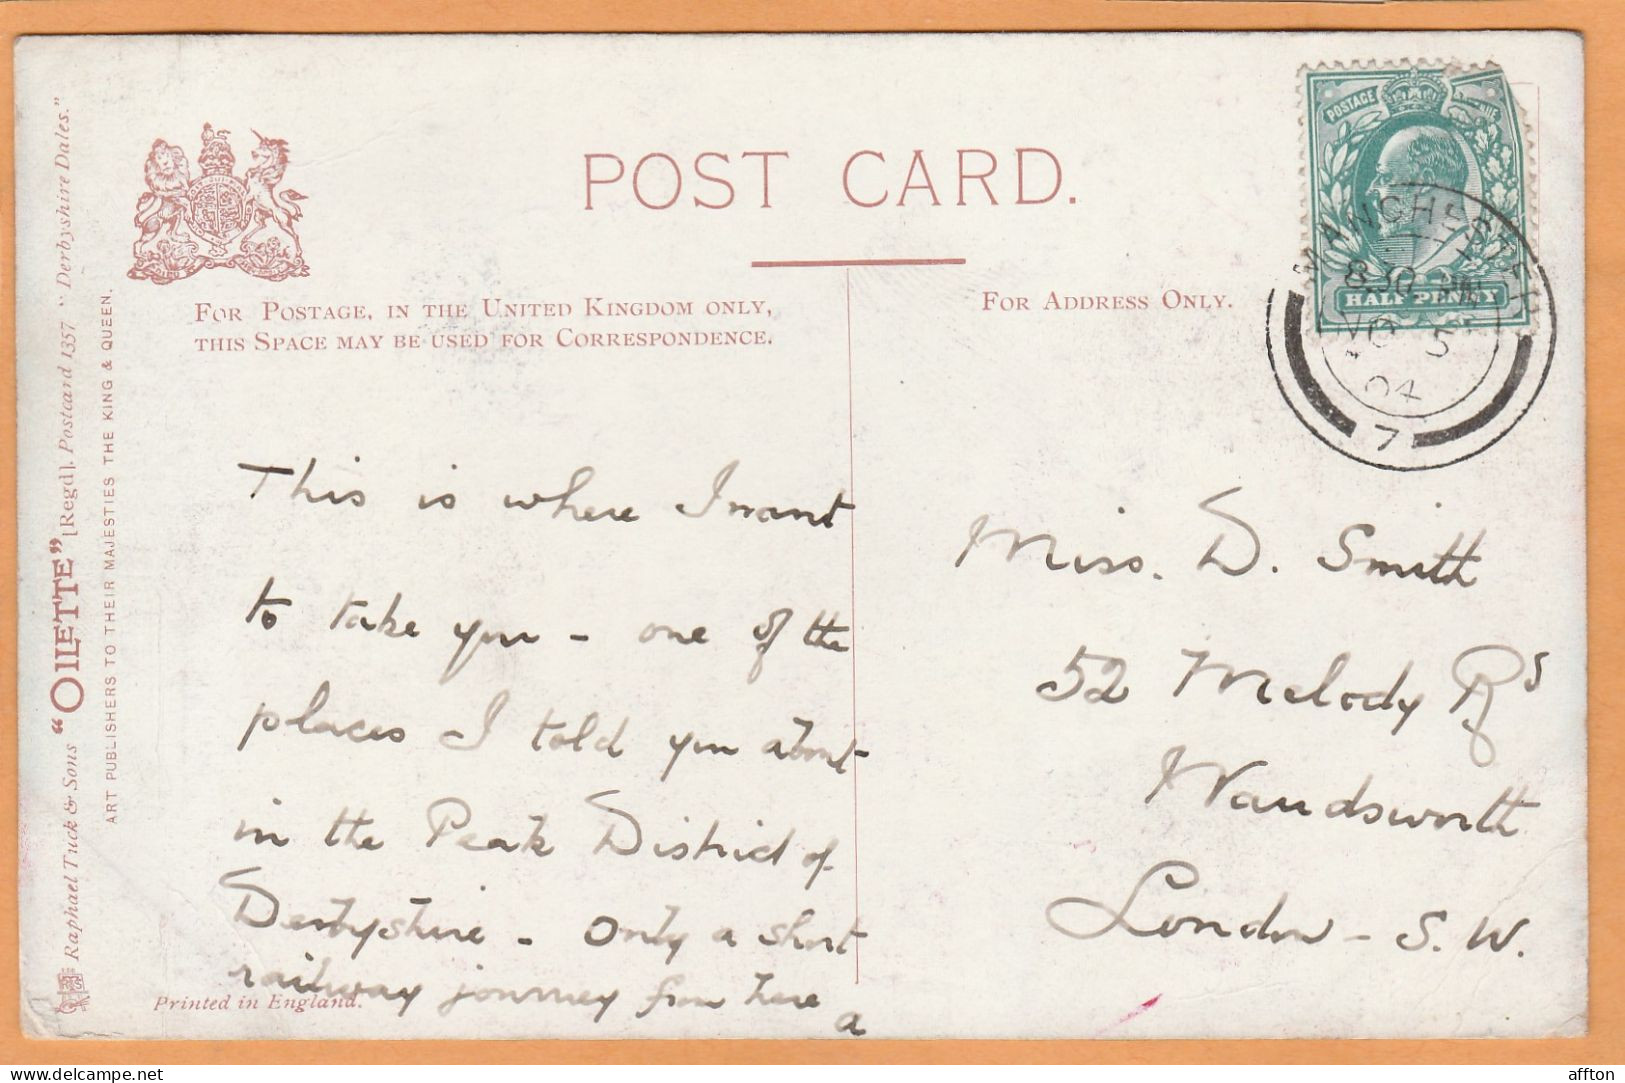 POST CARD.
FOR POSTAGE, IN THE UNITED KINGDOM ONLY,
THIS SPACE MAY BE USED FOR CORRESPONDENCE.
FOR ADDRESS ONLY.
POSTAGE
HALFPENNY
MANCHESTER
8.30 PM
NO 5
04
7
This is where I want
to take you – one of the
places I told you about
in the Peak District of
Derbyshire – only a short
railway journey from here
a
Miss. D. Smith
52 Melody Rd
Wandsworth
London – S. W.
Printed in England.
Raphael Tuck & Sons "OILETTE" [Regd]. Postcard 1357 "Derbyshire Dales."
ART PUBLISHERS TO THEIR MAJESTIES THE KING & QUEEN.
affton